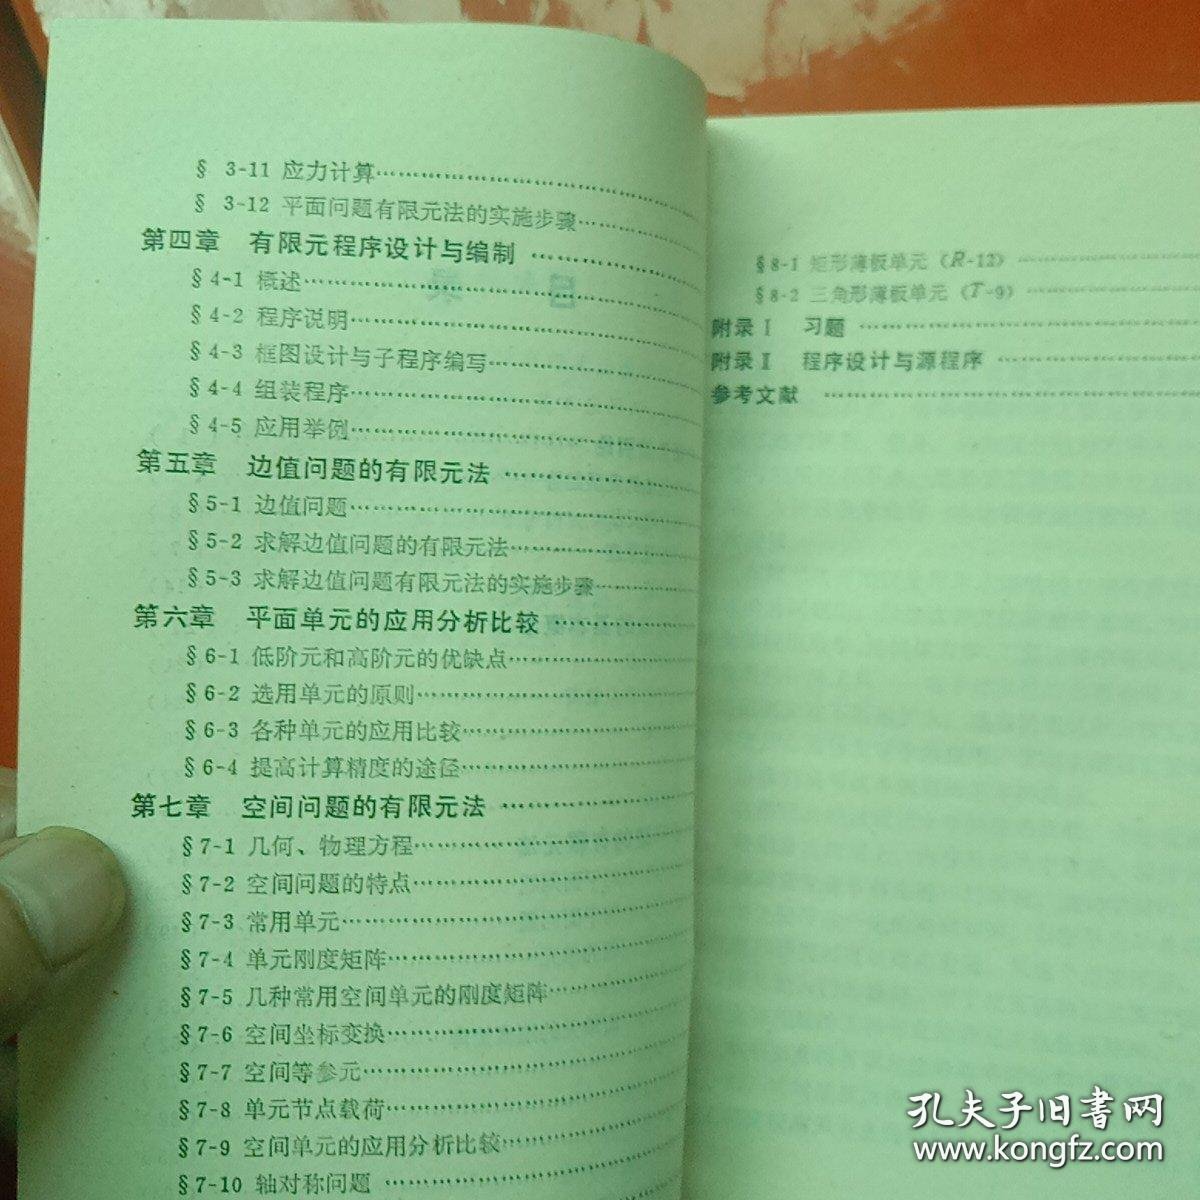 § 3-11 应力计算
§ 3-12 平面问题有限元法的实施步骤
第四章 有限元程序设计与编制
§4-1 概述
§4-2 程序说明
§4-3 框图设计与子程序编写
§4-4 组装程序
§4-5 应用举例
第五章 边值问题的有限元法
§5-1 边值问题
§5-2 求解边值问题的有限元法
§5-3 求解边值问题有限元法的实施步骤
第六章 平面单元的应用分析比较
§6-1 低阶元和高阶元的优缺点
§6-2 选用单元的原则
§6-3 各种单元的应用比较
§6-4 提高计算精度的途径
第七章 空间问题的有限元法
§7-1 几何、物理方程
§7-2 空间问题的特点
§7-3 常用单元
§7-4 单元刚度矩阵
§7-5 几种常用空间单元的刚度矩阵
§7-6 空间坐标变换
§7-7 空间等参元
§7-8 单元节点载荷
§7-9 空间单元的应用分析比较
§7-10 轴对称问题
§8-1 矩形薄板单元（R-12）
§8-2 三角形薄板单元（T-9）
附录Ⅰ 习题
附录Ⅱ 程序设计与源程序
参考文献
孔夫子旧书网
www.kongfz.com